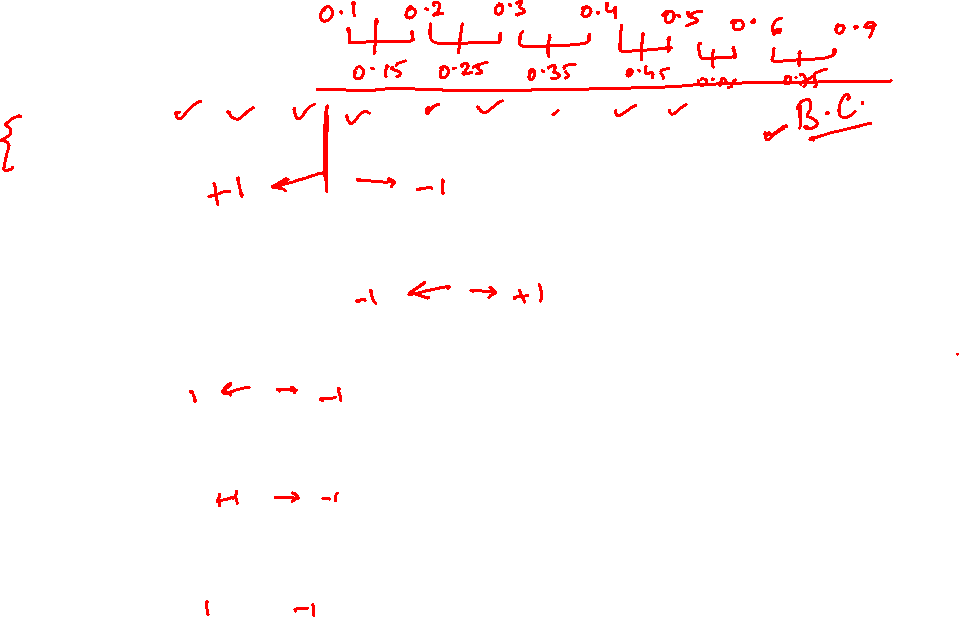 0.1 0.2 0.3 0.4 0.5 0.6 0.9
0.15 0.25 0.35 0.45
✓ ✓ ✓ ✓ ✓ ✓ ✓ ✓ ✓ B.C.
{
+1 ← → -1
-1 ← → +1
1 ← → -1
+1 → -1
1 -1